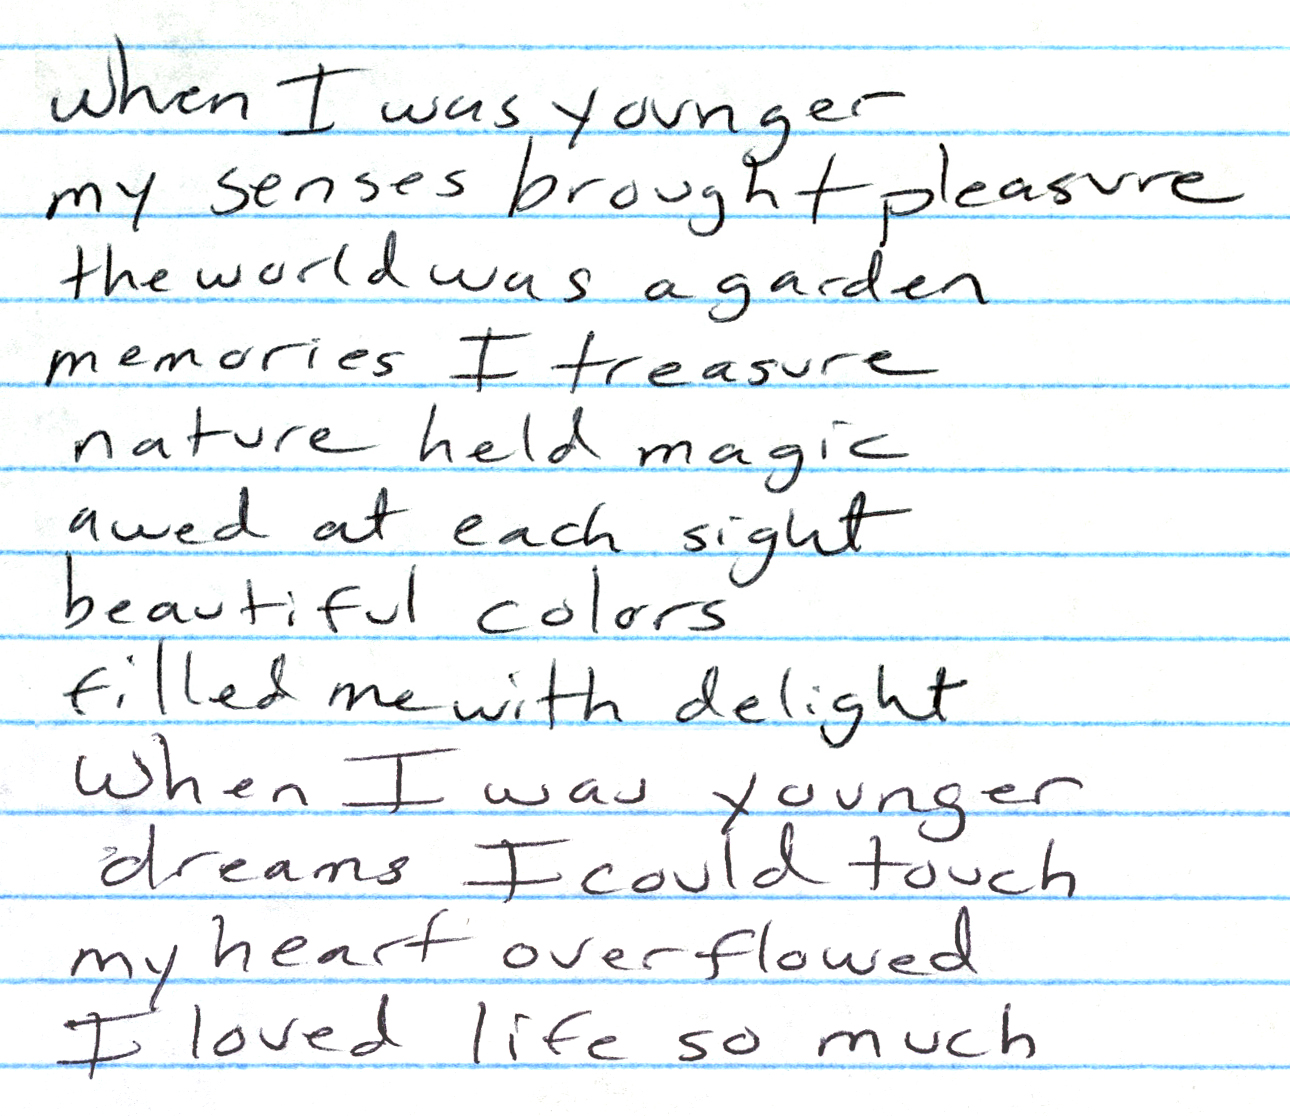 when I was younger
my senses brought pleasure
the world was a garden
memories I treasure
nature held magic
awed at each sight
beautiful colors
filled me with delight
when I was younger
dreams I could touch
my heart overflowed
I loved life so much